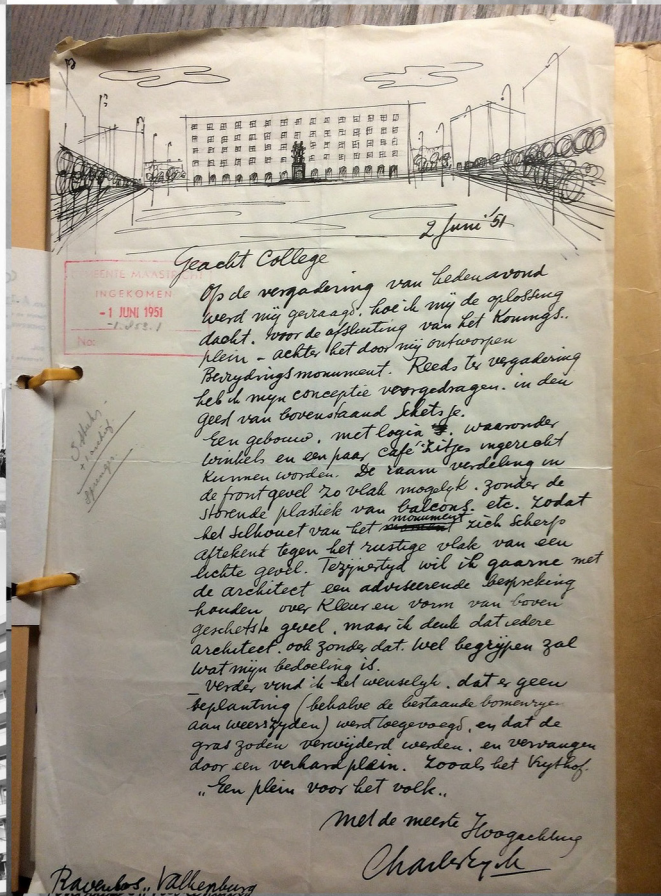 2 Juni '51
Geacht College
GEMEENTE MAASTRICHT
INGEKOMEN
-1 JUNI 1951
No:
Op de vergadering van hedenavond
werd mij gevraagd, hoe ik mij de oplossing
dacht, voor de afsluiting van het Konings..
plein – achter het door mij ontworpen
Bevrydingsmonument. Reeds ter vergadering
heb ik mijn conceptie voorgedragen. in den
geest van bovenstaand schetsje.
Een gebouw, met logia's, waaronder
winkels en een paar café zitjes ingericht
kunnen worden. De raam verdeling in
de front gevel zo vlak mogelyk. zonder de
storende plastiek van balcons. etc. Zodat
het silhouet van het monument zich scherp
aftekent tegen het rustige vlak van een
lichte gevel. Tezijnertyd wil ik gaarne met
de architect een adviserende bespreking
houden over kleur en vorm van boven
geschetste gevel, maar ik denk dat iedere
architect, ook zonder dat. wel begrijpen zal
wat mijn bedoeling is.
– Verder vind ik het wenselyk. dat er geen
beplanting (behalve de bestaande bomenryen
aan weerszyden) werd toegevoegd, en dat de
gras zoden verwijderd werden. en vervangen
door een verhard plein. Zooals het Vrythof.
„Een plein voor het volk„
Met de meeste Hoogachting
Charles Eyck
Ravenbos „ Valkenburg